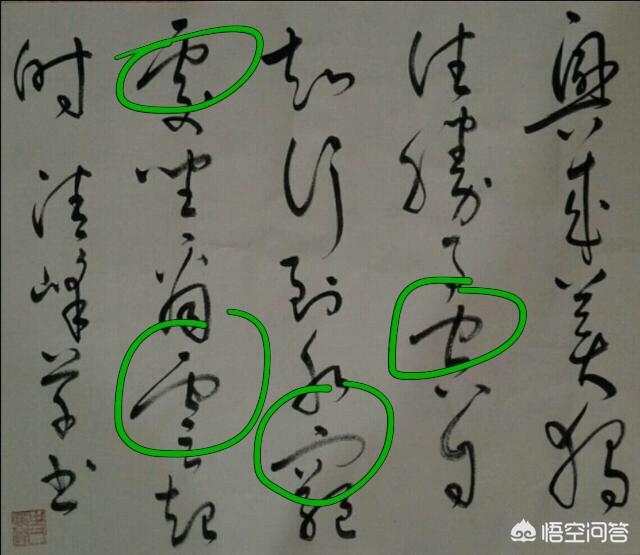 興来美獨
往勝事空自
知行到水窮
處坐看雲起
时 清峰草书
悟空问答